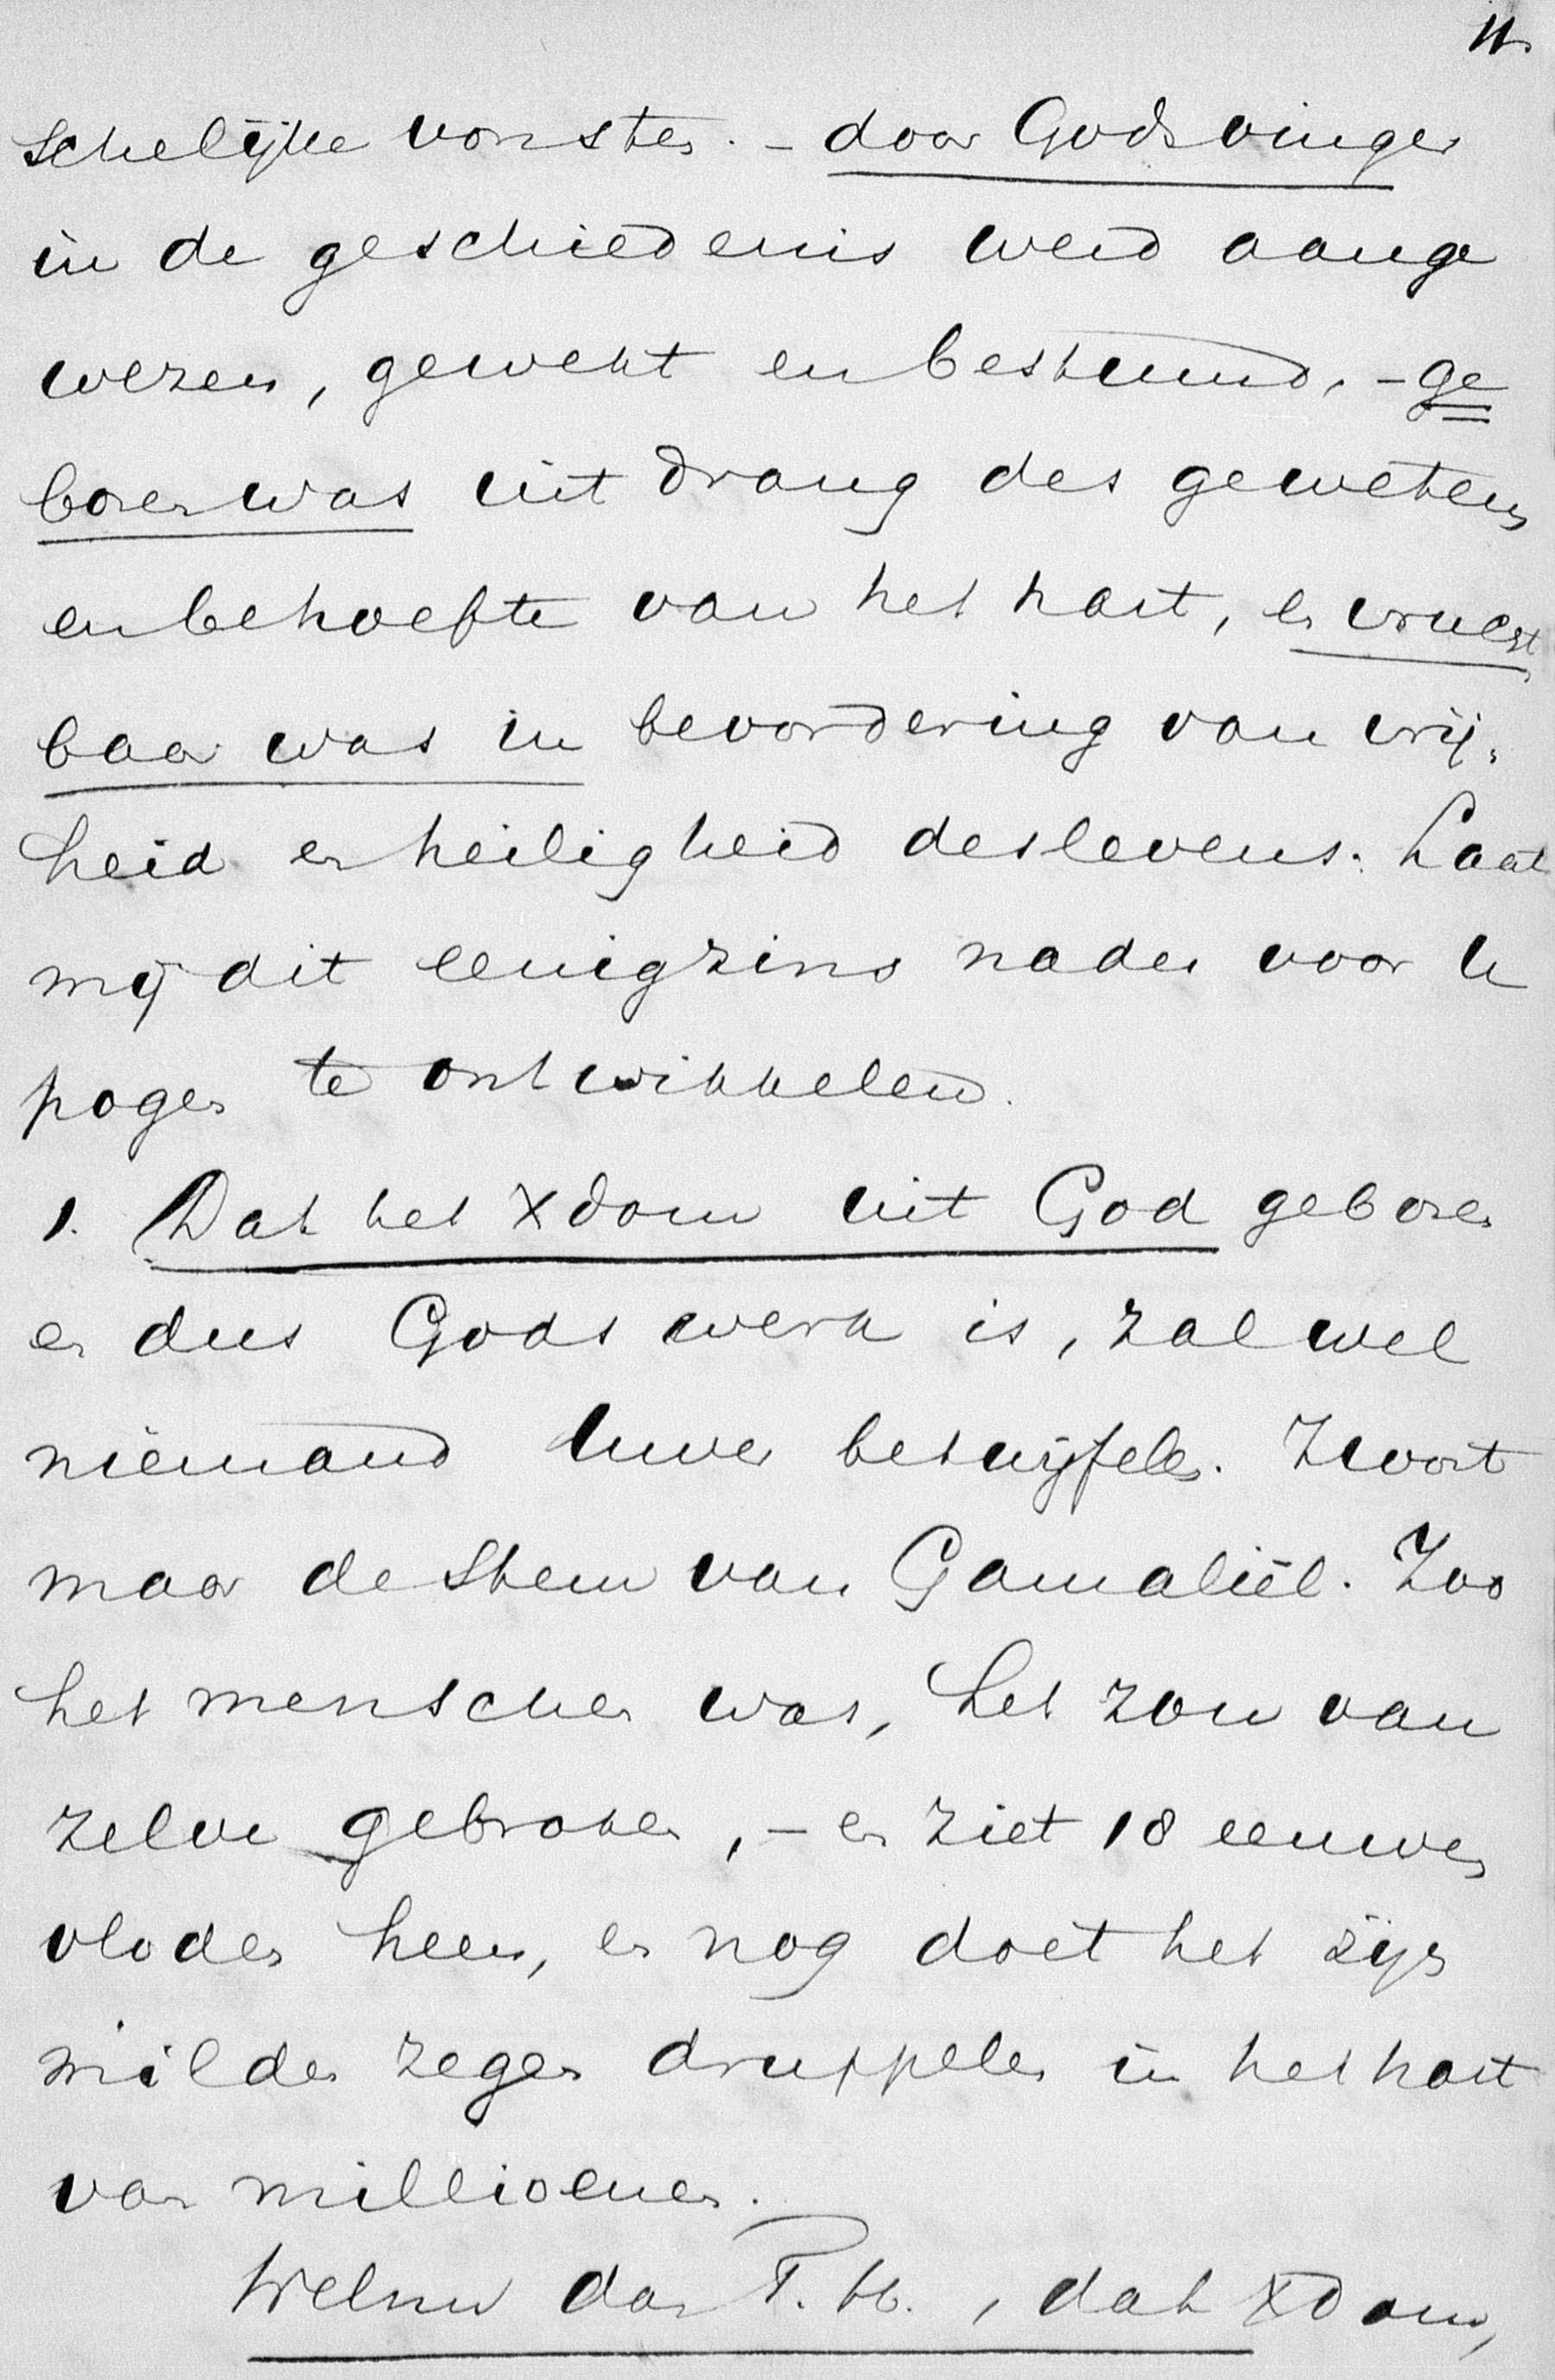 11.
schelijke vorsten. - door Gods vinger
in de geschiedenis werd aange
wezen, gewekt en bestuurd, - ge
boren was uit drang des gewetens
en behoefte van het hart, en vrucht
baar was in bevordering van vrij-
heid en heiligheid des levens. Laat
mij dit eenigzins nader voor U
pogen te ontwikkelen.
1. Dat het Xdom uit God geboren
en dus Gods werk is, zal wel
niemand Uwer betwijfelen. Hoort
maar de stem van Gamaliël. Zoo
het menschen was, het zou van
zelve gebroken, - en ziet 18 eeuwen
vloden heen, en nog doet het zijn
milden zegen druppelen in het hart
van millioenen.
Welnu dan T. H., dat Xdom,